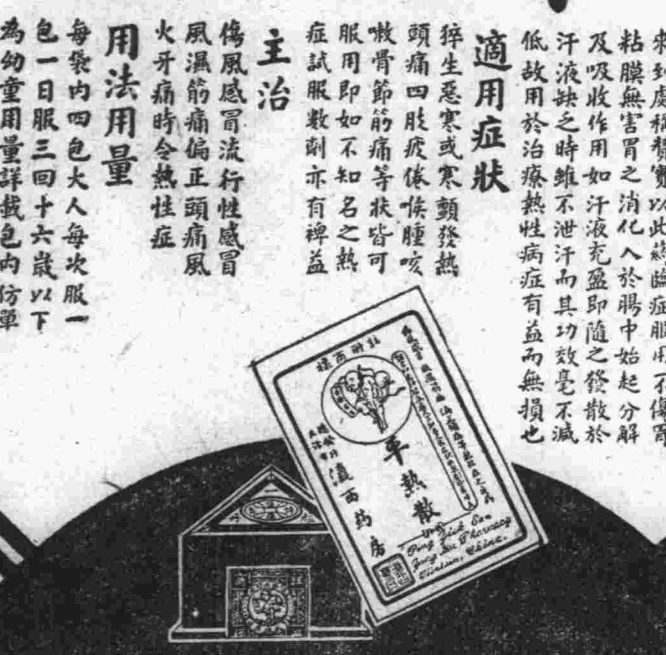 粘膜無害胃之消化入於腸中始起分解
及吸收作用如汗液充盈即隨之發散於
汗液缺乏時雖不泄汗而其功效毫不減
低故用於治療熱性病症有益而無損也
適用症狀
猝生惡寒或寒顫發熱
頭痛四肢疲倦喉腫咳
嗽骨節筋痛等狀皆可
服用即如不知名之熱
症試服數劑亦有裨益
主治
傷風感冒流行性感冒
風濕筋痛偏正頭痛風
火牙痛時令熱性症
用法用量
每袋內四包大人每次服一
包一日服三回十六歲以下
為幼童用量詳載包內仿單
註冊商標
平熱散
西药房
Ping Jick San
Tientsin, China.